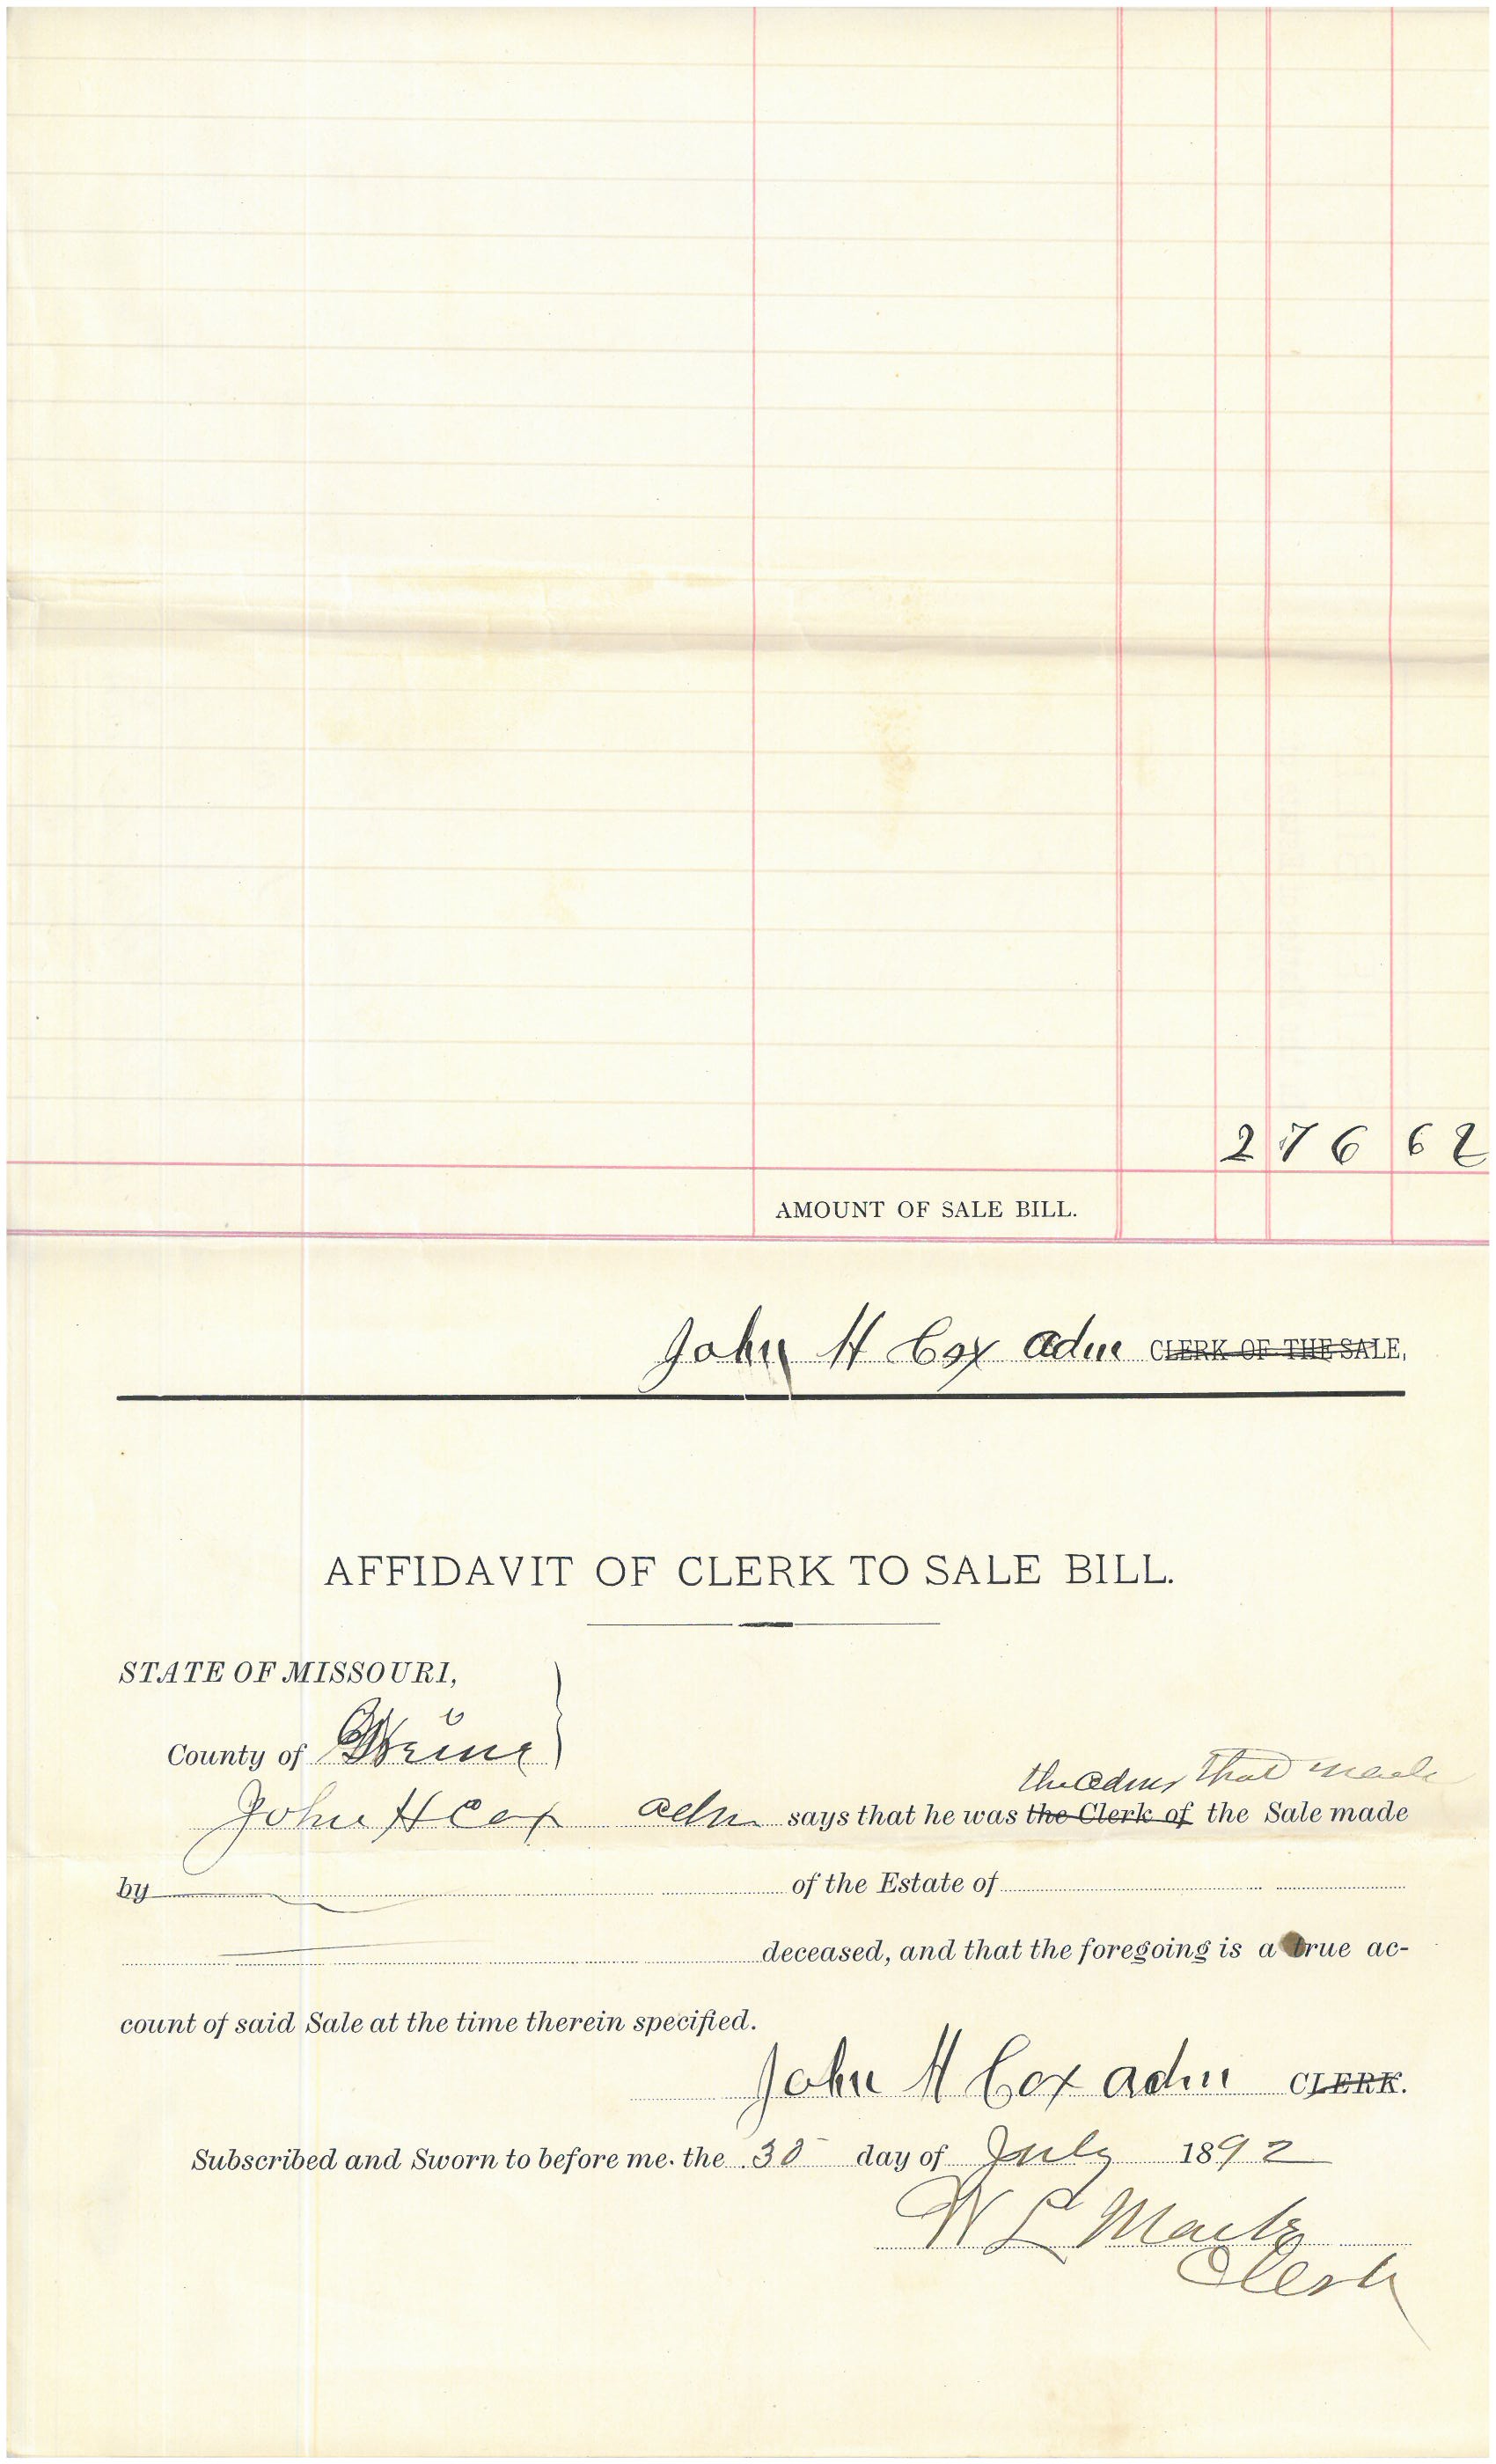 276 62
AMOUNT OF SALE BILL.
John H Cox adm CLERK OF THE SALE,
AFFIDAVIT OF CLERK TO SALE BILL.
STATE OF MISSOURI,
County of
the adm that made
John H Cox adm says that he was the Clerk of the Sale made
by of the Estate of
deceased, and that the foregoing is a true ac-
count of said Sale at the time therein specified.
John H Cox adm CLERK.
Subscribed and Sworn to before me. the 30 day of July 1892
W L
Clerk